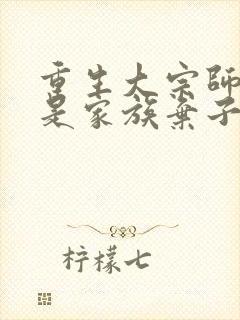 重生大宗师
是家族弃子
柠檬七